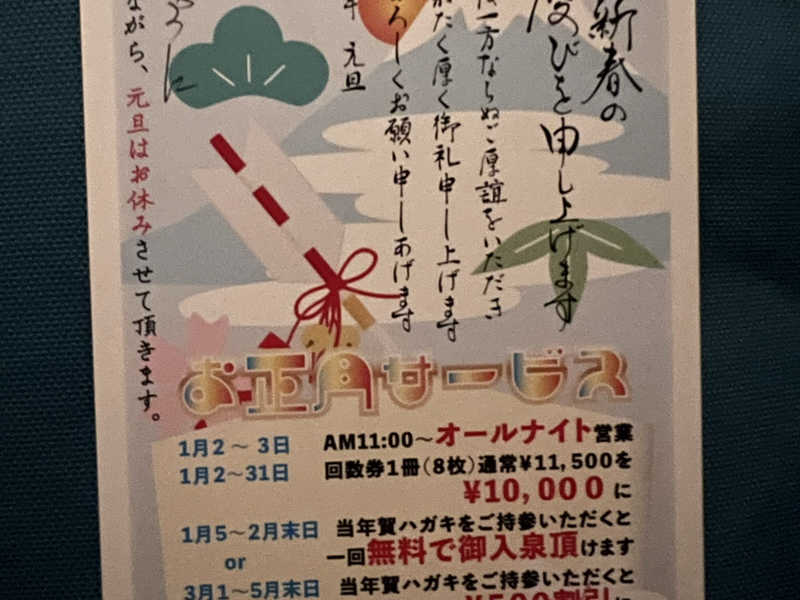 新春の
びを申し上げます
一方ならぬご厚誼をいただき
厚く御礼申し上げます
ろしくお願い申しあげます
年 元旦
ながら、元旦はお休みさせて頂きます。
お正月サービス
1月2～3日 AM11:00～オールナイト営業
1月2～31日 回数券1冊(8枚)通常¥11,500を
¥10,000に
1月5～2月末日 当年賀ハガキをご持参いただくと
or 一回無料で御入泉頂けます
3月1～5月末日 当年賀ハガキをご持参いただくと
¥500割引に